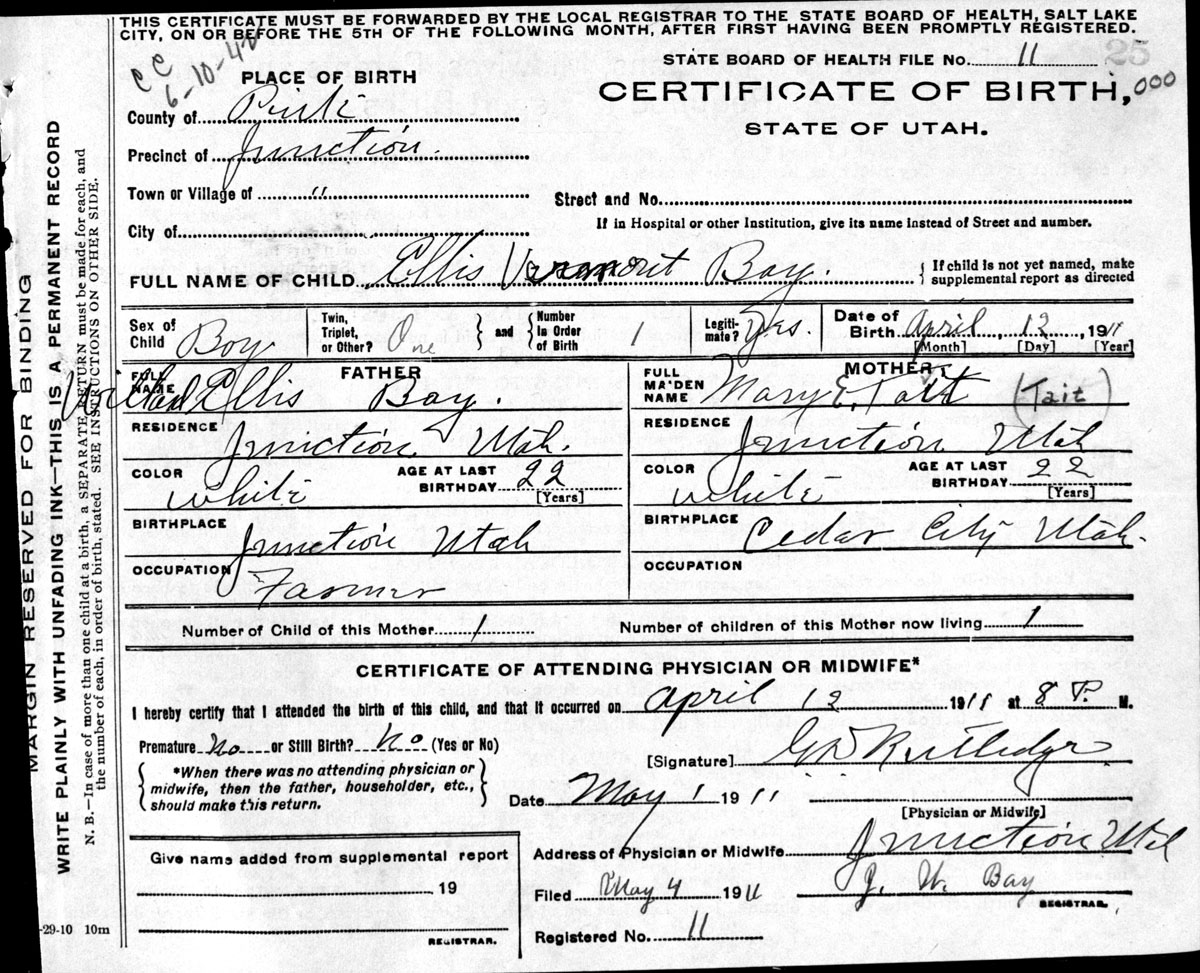 THIS CERTIFICATE MUST BE FORWARDED BY THE LOCAL REGISTRAR TO THE STATE BOARD OF HEALTH, SALT LAKE
CITY, ON OR BEFORE THE 5TH OF THE FOLLOWING MONTH, AFTER FIRST HAVING BEEN PROMPTLY REGISTERED.
CC
6-10-42
25
STATE BOARD OF HEALTH FILE No. 11
PLACE OF BIRTH
CERTIFICATE OF BIRTH, 000
STATE OF UTAH.
County of
Precinct of Junction.
Town or Village of "
Street and No.
City of
If in Hospital or other Institution, give its name instead of Street and number.
FULL NAME OF CHILD Ellis Bay.
If child is not yet named, make
supplemental report as directed
Sex of Child Boy
Twin, Triplet, or Other? One
and
Number in Order of Birth 1
Legiti-mate? Yes.
Date of Birth April 12 1911
[Month] [Day] [Year]
FATHER
FULL NAME Ellis Bay.
RESIDENCE Junction Utah.
COLOR White AGE AT LAST BIRTHDAY 22
[Years]
BIRTHPLACE Junction Utah
OCCUPATION Farmer
MOTHER
FULL MAIDEN NAME Mary E. Tait (Tait)
RESIDENCE Junction Utah
COLOR White AGE AT LAST BIRTHDAY 22
[Years]
BIRTHPLACE Cedar City Utah.
OCCUPATION
Number of Child of this Mother 1 Number of children of this Mother now living 1
CERTIFICATE OF ATTENDING PHYSICIAN OR MIDWIFE*
I hereby certify that I attended the birth of this child, and that it occurred on April 12 1911 at 8 P. M.
Premature No or Still Birth? No (Yes or No)
[Signature] Rutledge
*When there was no attending physician or
midwife, then the father, householder, etc.,
should make this return.
Date May 1 1911
[Physician or Midwife]
Give name added from supplemental report
19
REGISTRAR.
Address of Physician or Midwife Junction Utah
Filed May 4 1911 J. W. Bay
REGISTRAR.
Registered No. 11
-29-10 10m
MARGIN RESERVED FOR BINDING
WRITE PLAINLY WITH UNFADING INK—THIS IS A PERMANENT RECORD
N. B.—In case of more than one child at a birth, a SEPARATE RETURN must be made for each, and
the number of each, in order of birth, stated. SEE INSTRUCTIONS ON OTHER SIDE.